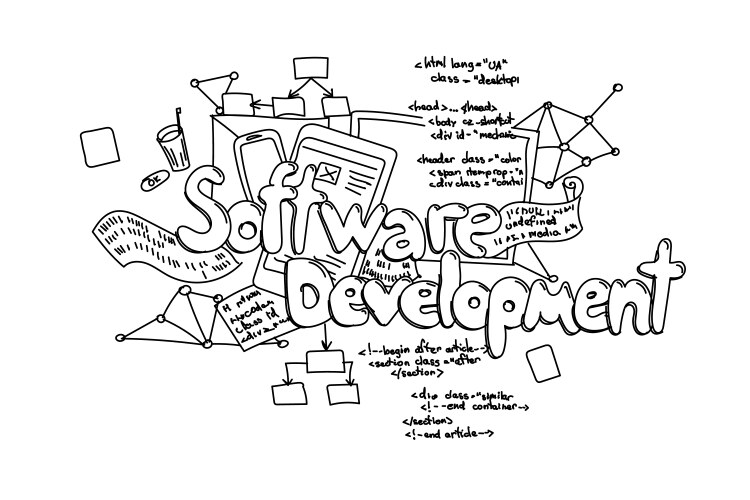 <html lang="UA"
class="desktopi
<head>... </head>
<body cz-shortcut
<div id="
<header class="color
<span itemprop="n
<div class="contai
OK
Software
"null"
undefined
media
Development
class id
<div
<!--begin after article-->
<section class="after
</section>
<div class="similar
<!--end container-->
</section>
<!-end article-->